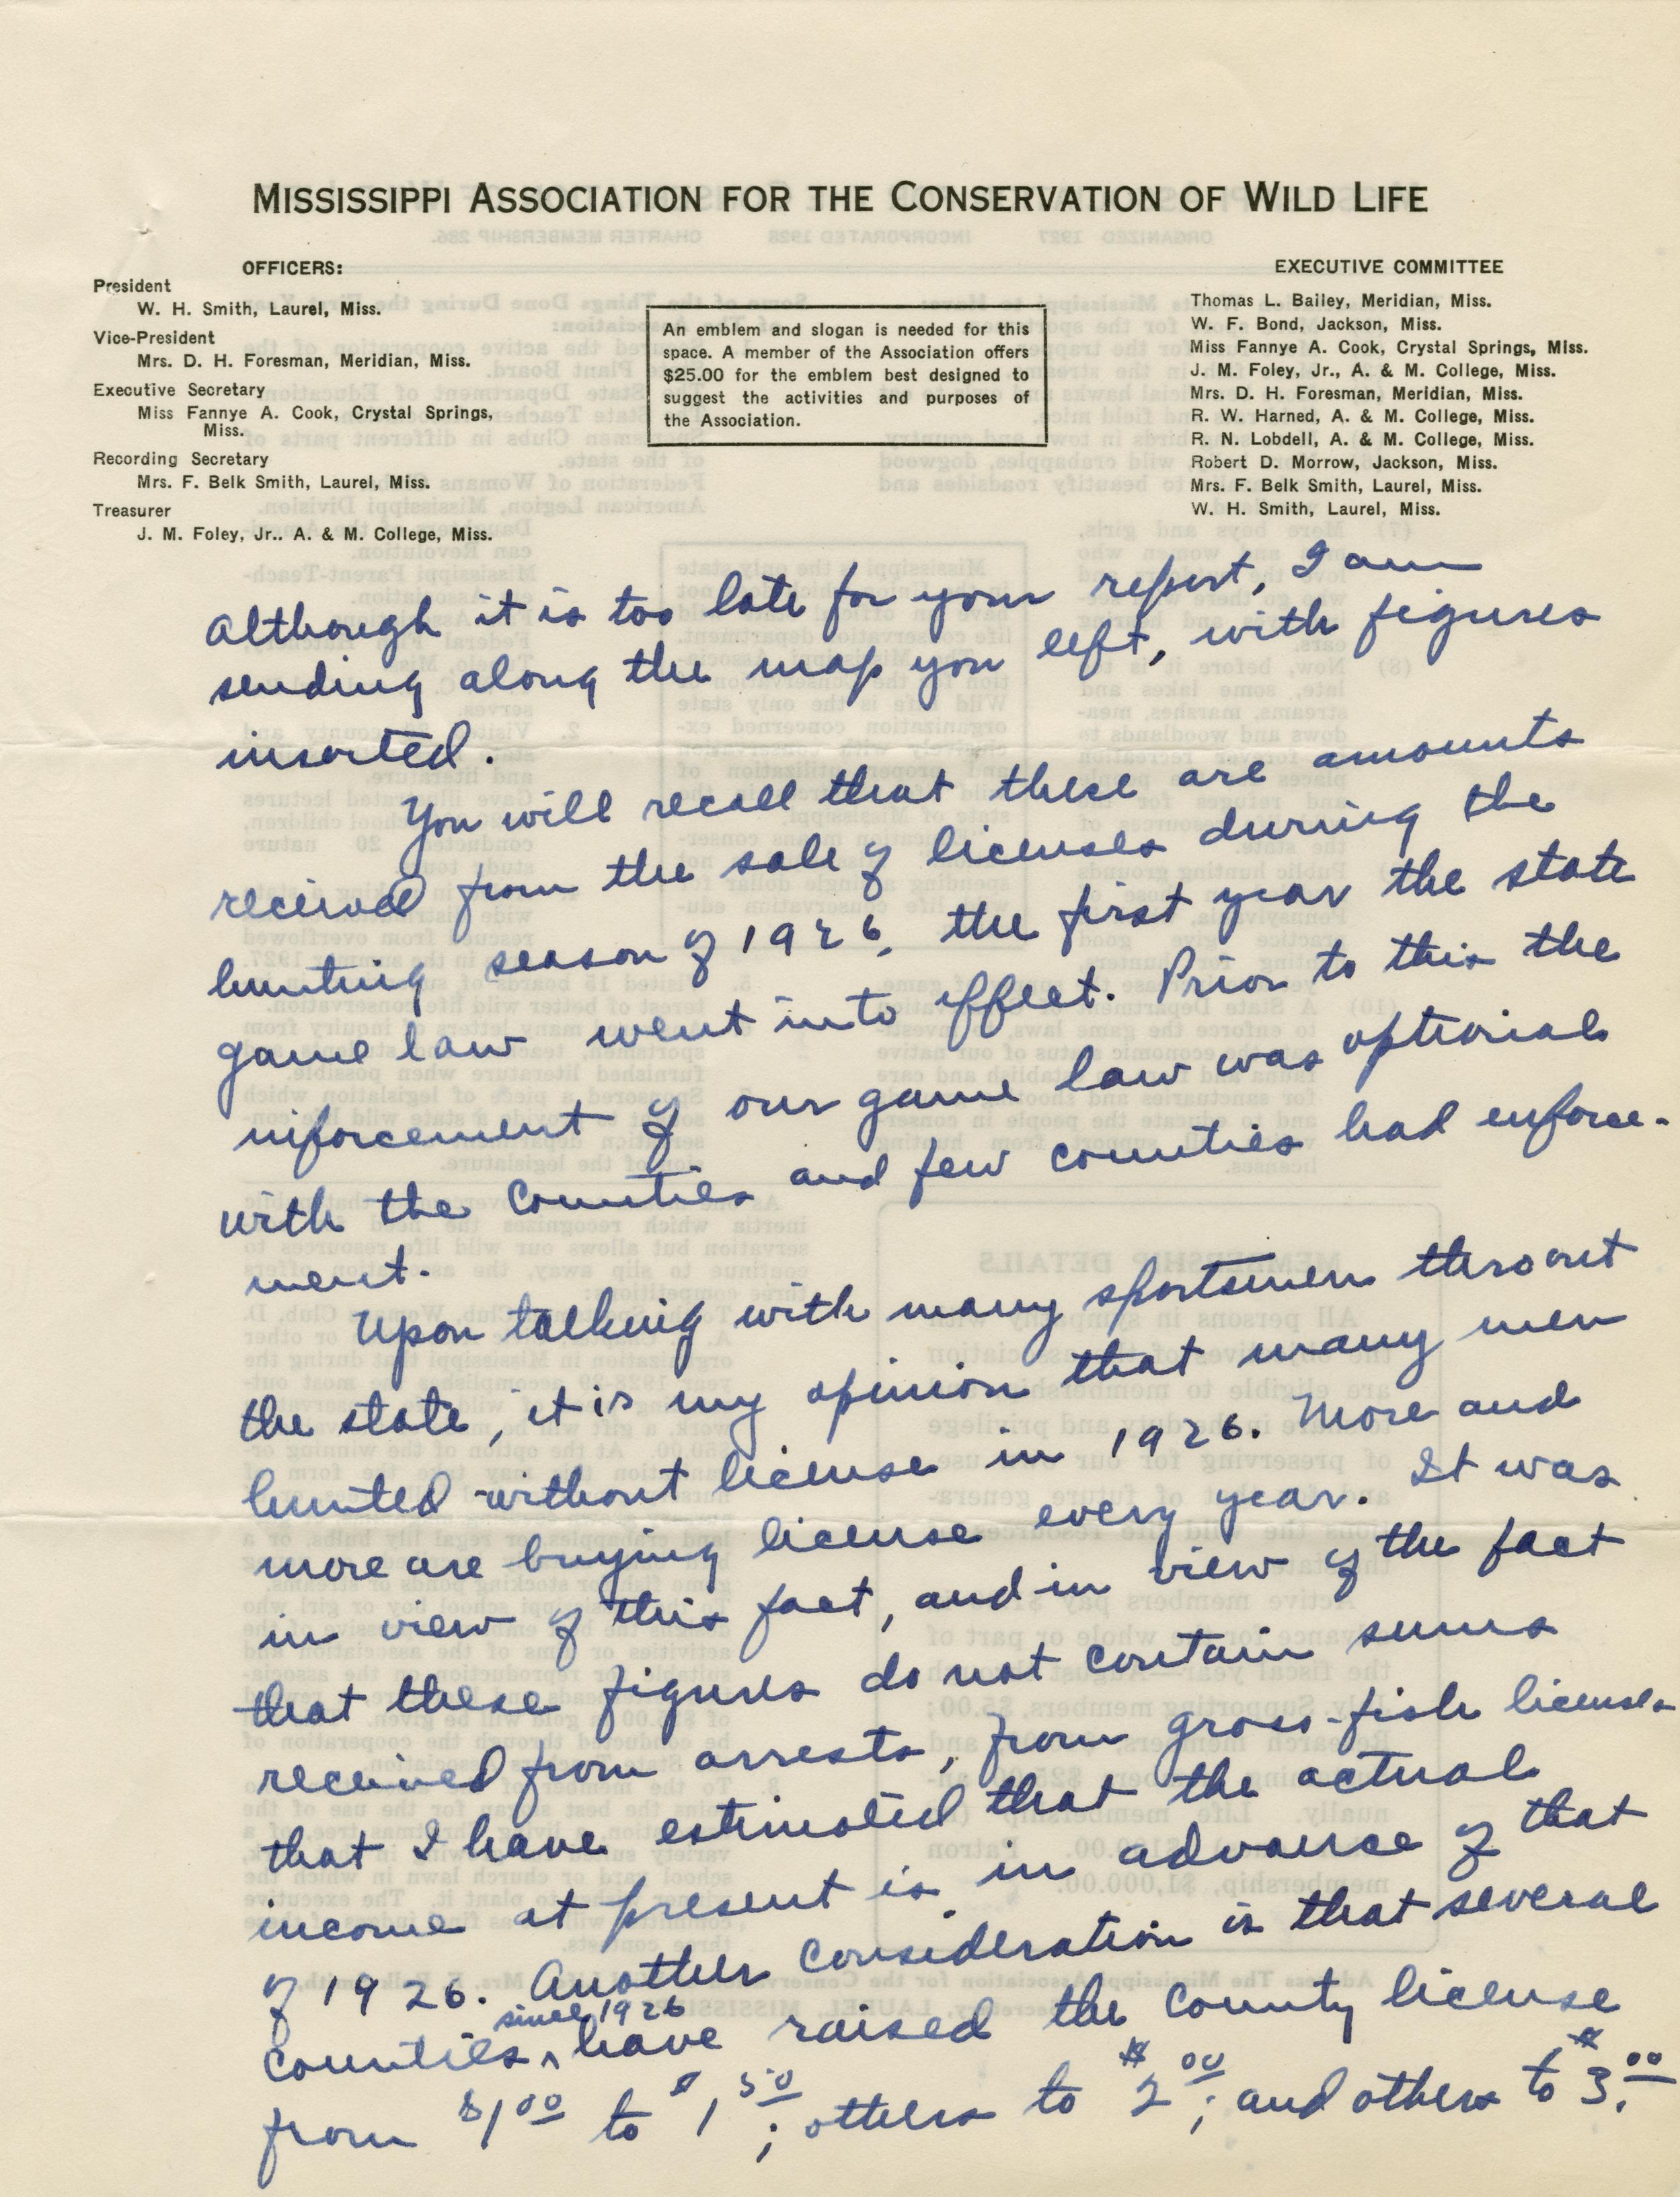 MISSISSIPPI ASSOCIATION FOR THE CONSERVATION OF WILD LIFE
OFFICERS:
President
W. H. Smith, Laurel, Miss.
Vice-President
Mrs. D. H. Foresman, Meridian, Miss.
Executive Secretary
Miss Fannye A. Cook, Crystal Springs,
Miss.
Recording Secretary
Mrs. F. Belk Smith, Laurel, Miss.
Treasurer
J. M. Foley, Jr.. A. & M. College, Miss.
An emblem and slogan is needed for this
space. A member of the Association offers
$25.00 for the emblem best designed to
suggest the activities and purposes of
the Association.
EXECUTIVE COMMITTEE
Thomas L. Bailey, Meridian, Miss.
W. F. Bond, Jackson, Miss.
Miss Fannye A. Cook, Crystal Springs, Miss.
J. M. Foley, Jr., A. & M. College, Miss.
Mrs. D. H. Foresman, Meridian, Miss.
R. W. Harned, A. & M. College, Miss.
R. N. Lobdell, A. & M. College, Miss.
Robert D. Morrow, Jackson, Miss.
Mrs. F. Belk Smith, Laurel, Miss.
W. H. Smith, Laurel, Miss.
Although it is too late for your report, I am
sending along the map you left, with figures
inserted.
You will recall that these are amounts
received from the sale of licenses during the
hunting season of 1926, the first year the state
game law went into effect. Prior to this the
inforcement of our game law was optional
with the counties and few counties had enforce-
ment.
Upon talking with many sportsmen throout
the state, it is my opinion that many men
hunted without license in 1926. More and
more are buying license every year. It was
in view of this fact, and in view of the fact
that these figures do not contain sums
received from arrests, from gross-fish licenses
that I have estimated that the actual
income at present is in advance of that
of 1926. Another consideration is that several
counties ^ since 1926 have raised the county license
from $1.00 to $1.50; others to $2.00; and others to $3.00